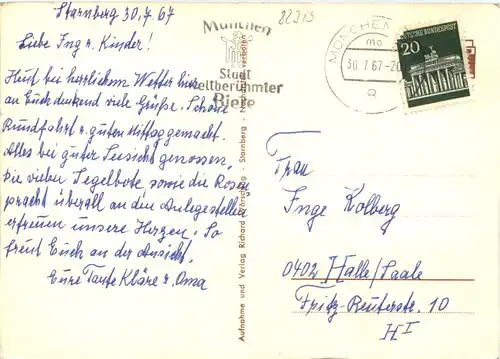 Starnberg 30.7.67
Liebe Ing u. Kinder!
Heut bei herrlichem Wetter hier
an Euch denkend viele Grüße. Schöne
Rundfahrt u. guten Mittag gemacht.
Alles bei guter Seesicht genossen,
die vielen Segelbote sowie die Rosen
pracht überall an den Anlegestellen
erfreuen unsere Herzen. So
freut Euch an der Ansicht.
Eure Tante Kläre u. Oma
82313
München
Stadt
weltberühmter
Biere
MÜNCHEN
30.7.67-20
a
DEUTSCHE BUNDESPOST
20
Aufnahme und Verlag Richard - Starnberg - verboten
Frau
Inge Kolberg
0402 Halle/Saale
Fritz-Reuterstr. 10
H I